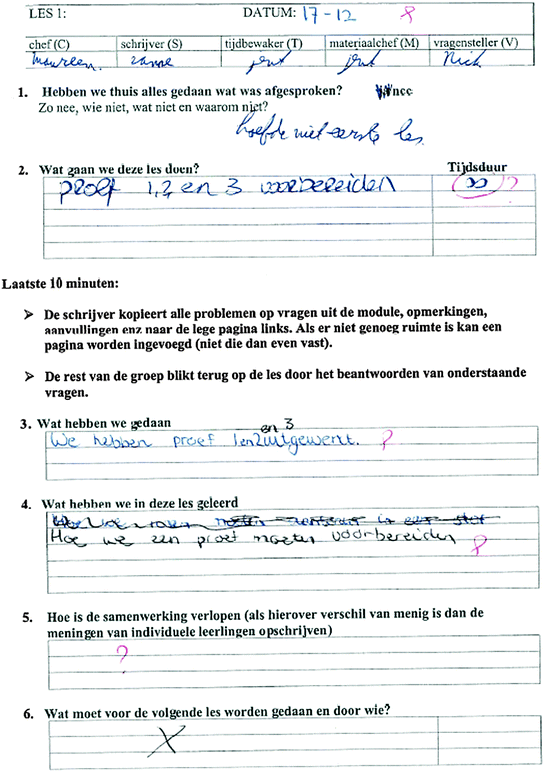 LES 1: DATUM: 17-12 ?
chef (C) schrijver (S) tijdbewaker (T) materiaalchef (M) vragensteller (V)
Maureen. Sanne Nick
1. Hebben we thuis alles gedaan wat was afgesproken? nee
Zo nee, wie niet, wat niet en waarom niet?
hoefde niet eerste les.
2. Wat gaan we deze les doen? Tijdsduur
proef 1,2 en 3 voorbereiden ∞ ?
Laatste 10 minuten:
➢ De schrijver kopieert alle problemen op vragen uit de module, opmerkingen,
aanvullingen enz naar de lege pagina links. Als er niet genoeg ruimte is kan een
pagina worden ingevoegd (niet die dan even vast).
➢ De rest van de groep blikt terug op de les door het beantwoorden van onderstaande
vragen.
3. Wat hebben we gedaan
en 3
We hebben proef 1en2uitgewerkt. ?
4. Wat hebben we in deze les geleerd
Hoe we een proef moeten voorbereiden ?
5. Hoe is de samenwerking verlopen (als hierover verschil van menig is dan de
meningen van individuele leerlingen opschrijven)
?
6. Wat moet voor de volgende les worden gedaan en door wie?
X